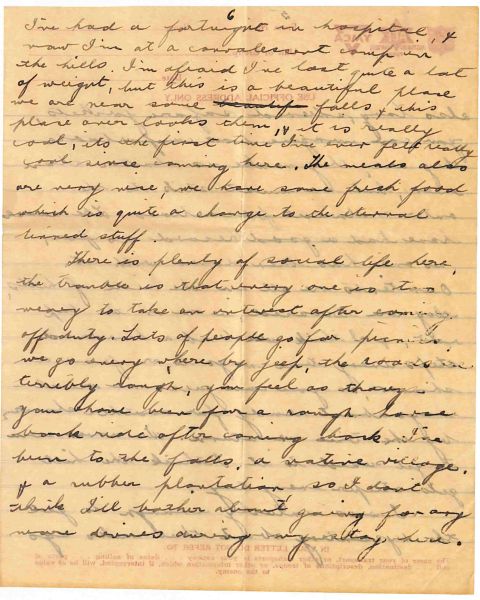 6
I've had a fortnight in hospital, &
now I'm at a convalescent camp in
the hills. I'm afraid I've lost quite a lot
of weight, but this is a beautiful place
we are near some falls, this
place over looks them, & it is really
cool, its the first time I've ever felt really
cool since coming here. The meals also
are very nice, we have some fresh food
which is quite a change to the eternal
tinned stuff.
There is plenty of social life here,
the trouble is that every one is too
weary to take an interest after coming
off duty. Lots of people go for picnics
we go every where by jeep, the roads are
terribly rough, you feel as though
you have been for a rough horse
back ride after coming back. I've
been to the falls, a native village,
& a rubber plantation so I don't
think I'll bother about going for any
more drives during my stay here.